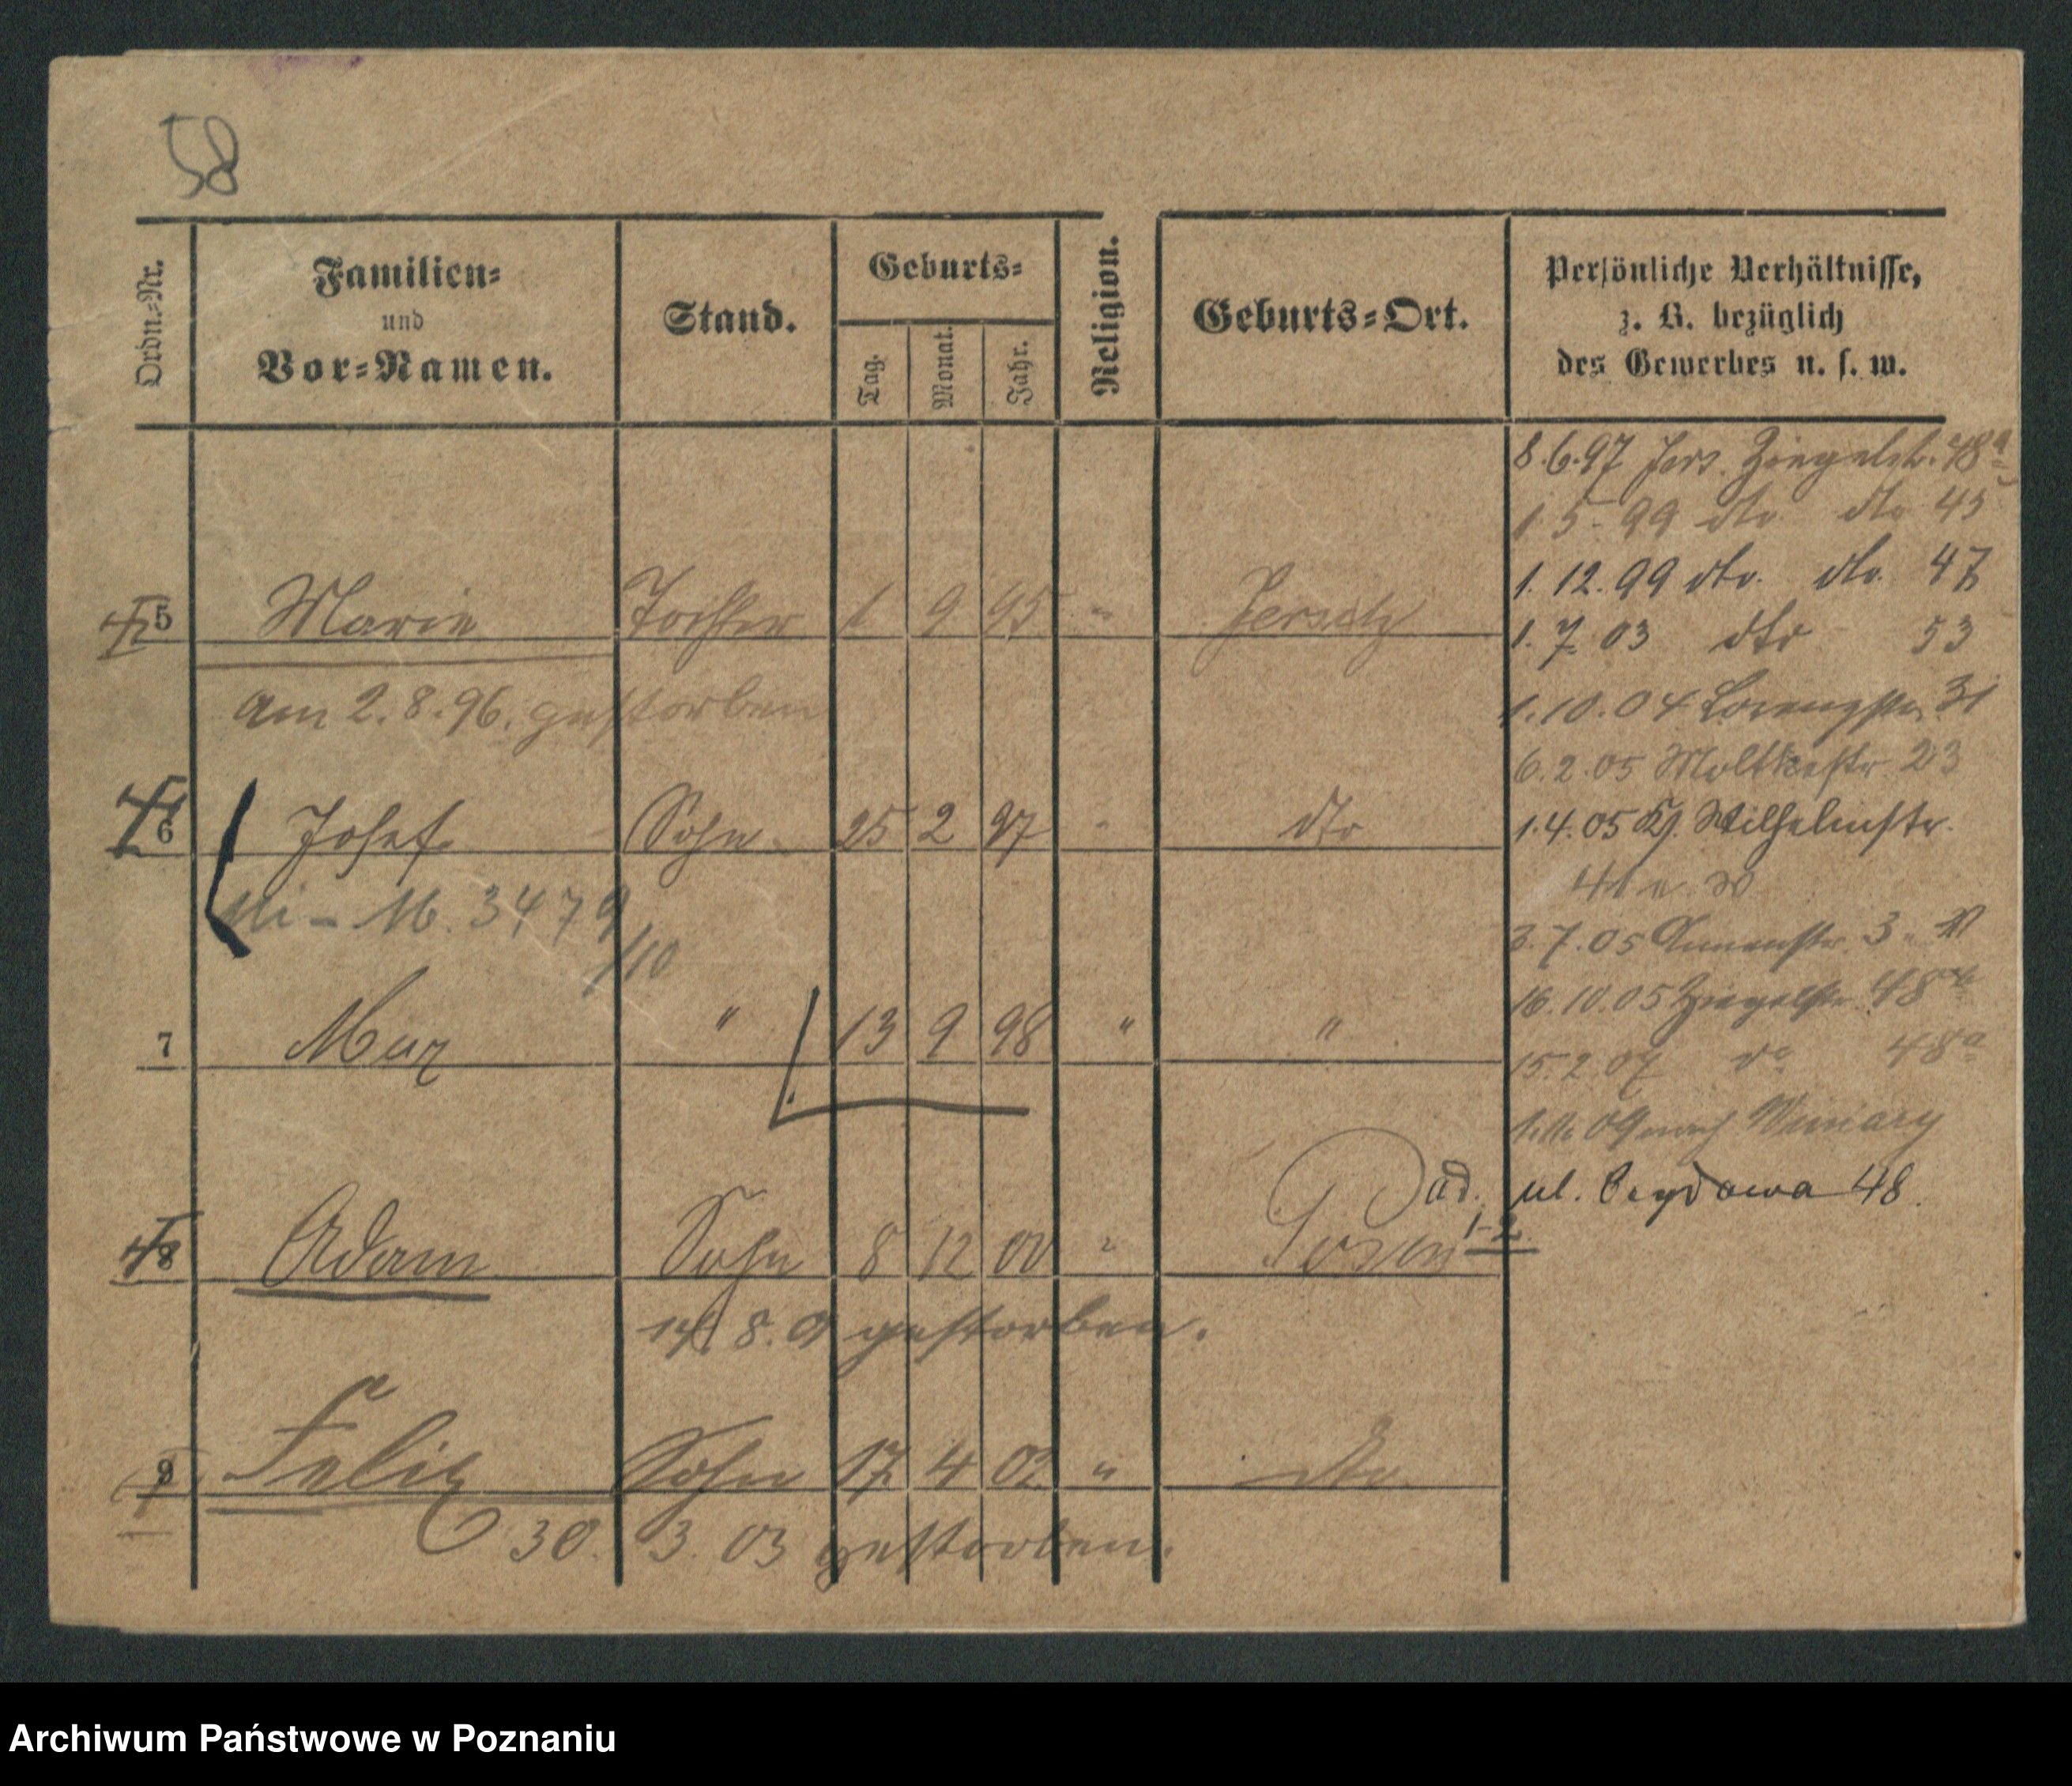 58
Ordn.-Nr.
Familien-
und
Vor-Namen.
Stand.
Geburts-
Tag.
Monat.
Jahr.
Religion.
Geburts-Ort.
Persönliche Verhältnisse,
z. B. bezüglich
des Gewerbes u. s. w.
8.6.97 Jers. Ziegelstr. 48a
1.5.99 dto dto 45
1.12.99 dto. dto. 47
1.7.03 dto 53
1.10.04 Lorenzstr. 31
6.2.05 Moltkestr 23
1.4.05 Kg. Wilhelmstr.
3.7.05 Annenstr. 3
16.10.05 Ziegelstr 48
15.2.07 do 48a
09 nach Winiary
ad. ul. 48.
5 Marie Tochter 1 9 95 " Jersitz
am 2.8.96. gestorben
6 Josef Sohn 25 2 97 " dto
M. 3479/10
7 Max " 13 9 98 " "
8 Adam Sohn 8 12 00 " Posen
8. 01 gestorben.
9 Felix Sohn 17 4 02 " dto
30. 3. 03 gestorben.
Archiwum Państwowe w Poznaniu